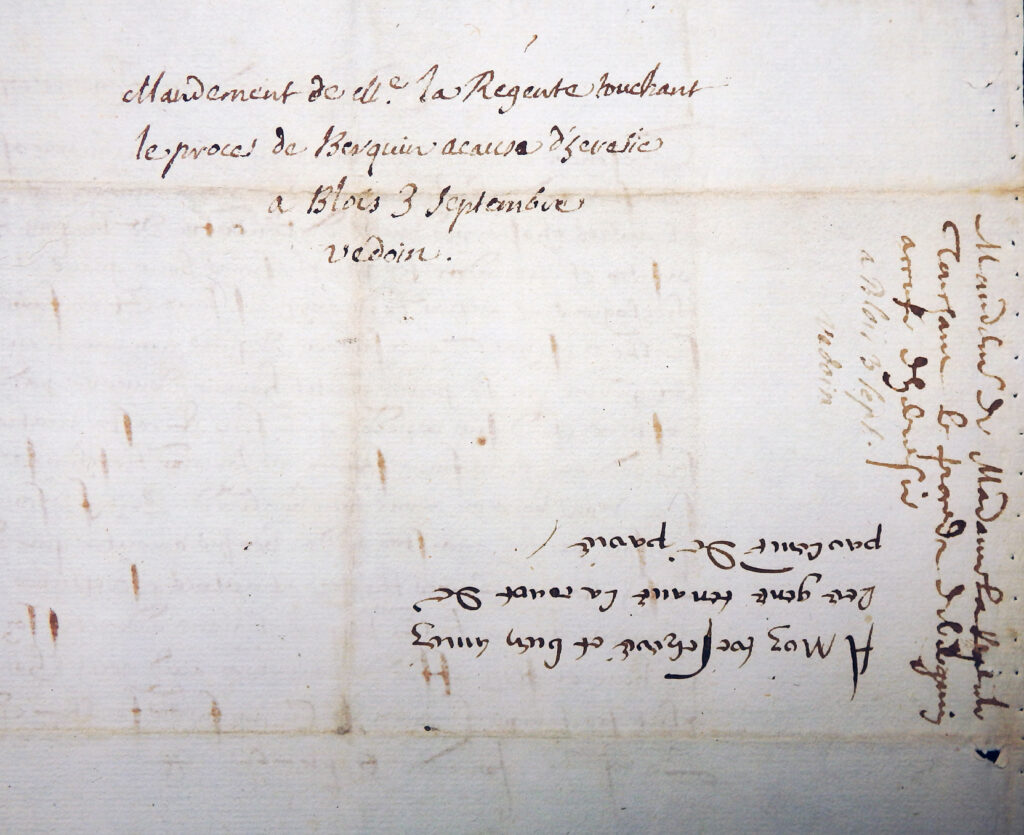 Mandement de Me. la Regente touchant
le proces de Berquin acause d'heresie
a Blois 3 Septembre
vedoin.
A Mes treschers et bien amez
les gens tenans la court de
parlement de paris
Mandement de Madame la Regente
touchant le proces de Berquin
accuse d'heresie
a Blois 3 sept.
vedoin